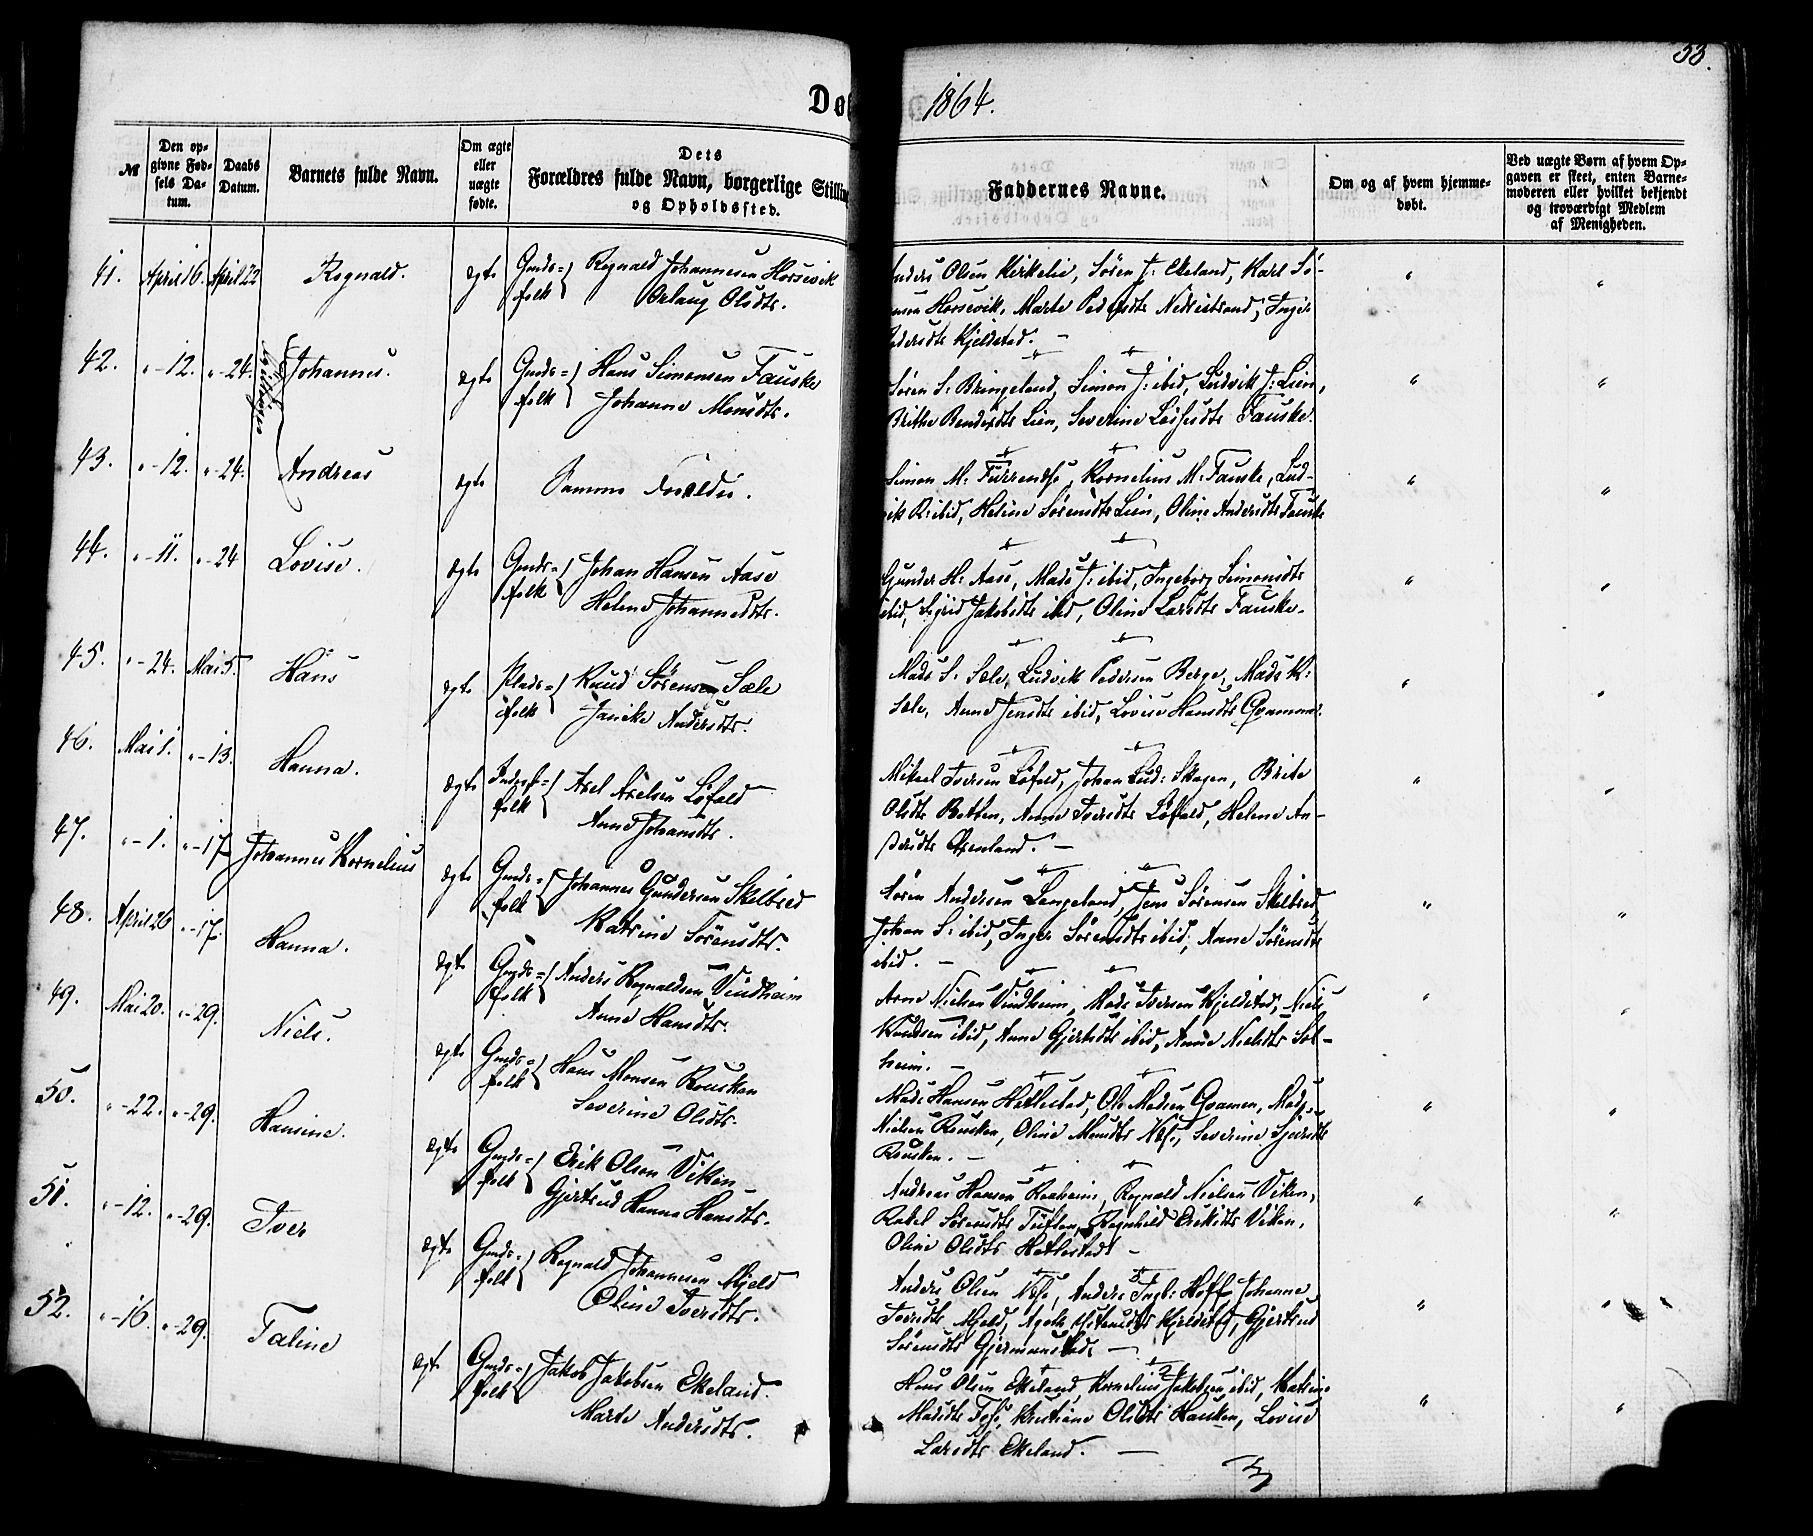 53.
Døb 1864.
№
Den op-
givne Fød-
sels Da-
tum.
Daabs
Datum.
Barnets fulde Navn.
Om ægte
eller
uægte
fødte.
Dets
Forældres fulde Navn, borgerlige Stillin
og Opholdssted.
Faddernes Navne.
Om og af hvem hjemme-
døbt.
Ved uægte Børn af hvem Op-
gaven er skeet, enten Barne-
moderen eller hvilket bekjendt
og troværdigt Medlem
af Menigheden.
41. April 16. April 22 Rognald. ægte Gmds- folk { Rognald Johannesen Horsevik
Orlaug Olsdtr.
Anders Olsen Kirkelie, Søren J: Ekeland, Karl Sö-
Horsevik, Marte Nedrestrand, Inger
Kjelstad. —
42. " - 12. " - 24. Johannes. ægte Gmds- folk { Hans Simonsen Fauske
Johanne Monsdtr.
Søren S: Bringeland, Simon J: ibid, Ludvik J: Lien,
Brithe Lien, Severine Fauske.
43. " - 12. " - 24. Andreas ægte Samme Forældre.
Simon M: Kornelius M: Fauske, Lud-
vik R: ibid, Heline Sörensdtr Lien, Oline Andersdtr Fauske
44. " - 11. " - 24 Lovise. ægte Gmds- folk { Johan Hansen Aase
Helene Johannesdtr.
Gunder H: Aase, Mads J: ibid, Ingeborg Simonsdtr
ibid, Sigrid Jakobsdtr ibid, Oline Larsdtr Fauske.
45. " - 24. Mai 5. Hans ægte Plads- folk { Knud Sørensen Sæle
Janike Andersdtr.
Mads S. Sæle, Ludvik Pedersen Berge, Mads K:
Sæle, Anne Jensdtr ibid, Lovise Hansdtr
46. Mai 1. " - 13. Hanna. ægte folk { Axel Axelsen Løfald
Anne Johansdtr.
Mikael Iversen Løfald, Johan Lud: Skagen, Brite
Olsdtr Botten, Anne Iversdtr Løfald, Helene An-
dersdtr —
47. " - 1. " - 17 Johannes Kornelius ægte Gmds- folk { Johannes Gundersen Skelbred
Katrine Sörensdtr.
Søren Andersen Langeland, Jens Sörensen Skelbred,
Johan S: ibid, Inger Sörensdtr ibid, Anne Sörensdtr
ibid. —
48. April 26 " - 17. Hanna. ægte Gmds- folk { Anders Rognaldsen Vindheim
Anne Hansdtr.
Arne Nielsen Vindheim, Mads Iversen Kjeldstad, Niels
Knudsen ibid, Anne Gjertsdtr ibid, Anne Nielsdtr Sol-
heim. —
49. Mai 20. " - 29. Niels. ægte Gmds- folk { Hans Monsen Rousken
Severine Olsdtr.
Mads Hansen Hatlestad, Ole Madsen Gvamen, Mads
Nielsen Rousken, Oline Monsdtr Næs, Severine Sjursdtr
Rousken. —
50. " - 22. " - 29. Hansine. ægte Gmds- folk { Erik Olson Viken
Gjertrud Hanna Hansdtr.
Andreas Hansen Reeheim, Rognald Nielsen Viken,
Rakel Sorensdtr Tuften, Rognhild Eriksdtr Viken,
Oline Olsdtr Hatlestad —
51. " - 12. " - 29. Iver ægte Gmds- folk { Rognald Johannesen Mjeld
Oline Iversdtr.
Anders Olsen Næs, Anders Ingb: Hoff, Johanne
Iversdtr Mjeld, Kjeldstad, Gjertrud
Sörensdtr Gjermunstad. —
52. " - 16. " - 29. Taline ægte Gmds- folk { Jakob Jakobsen Ekeland.
Marte Andersdtr.
Hans Olsen Ekeland, Kornelius Jakobsen ibid, Katrine
Madsdtr Kristiane Olsdtr Hauken, Lovise
Larsdtr Ekeland. —